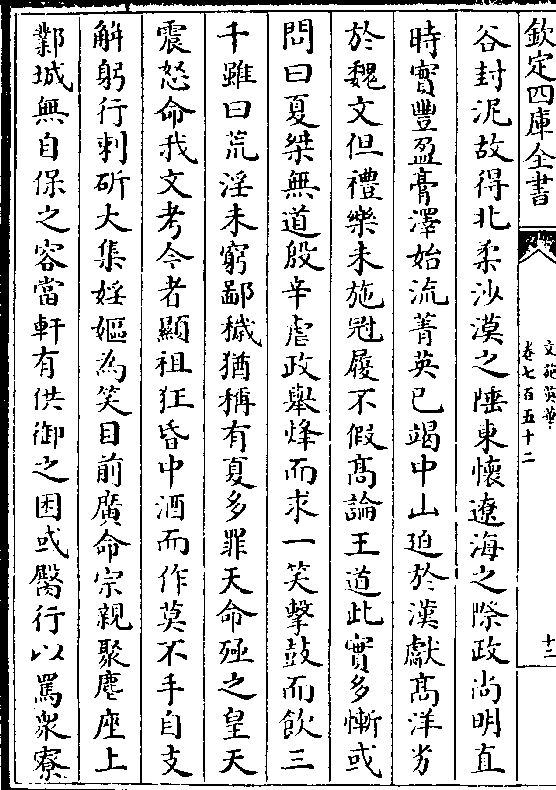 欽定四庫全書
文苑英華
卷七百五十二
十二
谷封泥故得北柔沙漠之陲東懷遼海之際政尚明直
時實豐盈膏澤始流菁英已竭中山迫於漢獻髙洋劣
於魏文但禮樂未施冠履不假髙論王道此實多慚或
問曰夏桀無道殷辛虐政舉烽而求一笑擊鼓而飲三
千雖曰荒淫未窮鄙穢猶稱有夏多罪天命殛之皇天
震怒命我文考今者顯祖狂昏中酒而作莫不手自支
解躬行刺斫大集婬嫗為笑目前廣命宗親聚麀座上
鄴城無自保之容當軒有供御之囚或臋行以罵衆寮